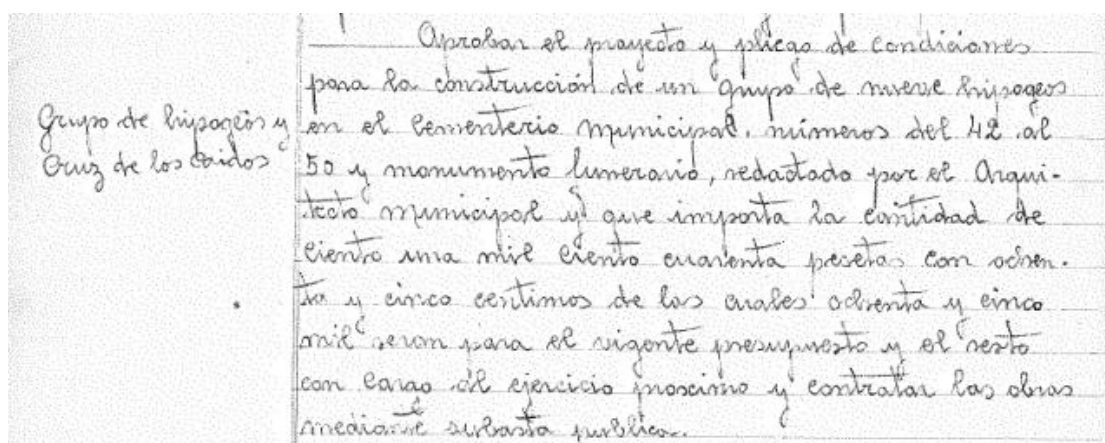 Grupo de hipogeos y
Cruz de los Caidos
Aprobar el proyecto y pliego de condiciones
para la construcción de un grupo de nueve hipogeos
en el Cementerio municipal, números del 42 al
50 y monumento funerario, redactado por el Arqui-
tecto municipal y que importa la cantidad de
ciento una mil ciento cuarenta pesetas con ochen-
ta y cinco centimos de las cuales ochenta y cinco
mil seran para el vigente presupuesto y el resto
con cargo al ejercicio proscimo y contratar las obras
mediante subasta publica.